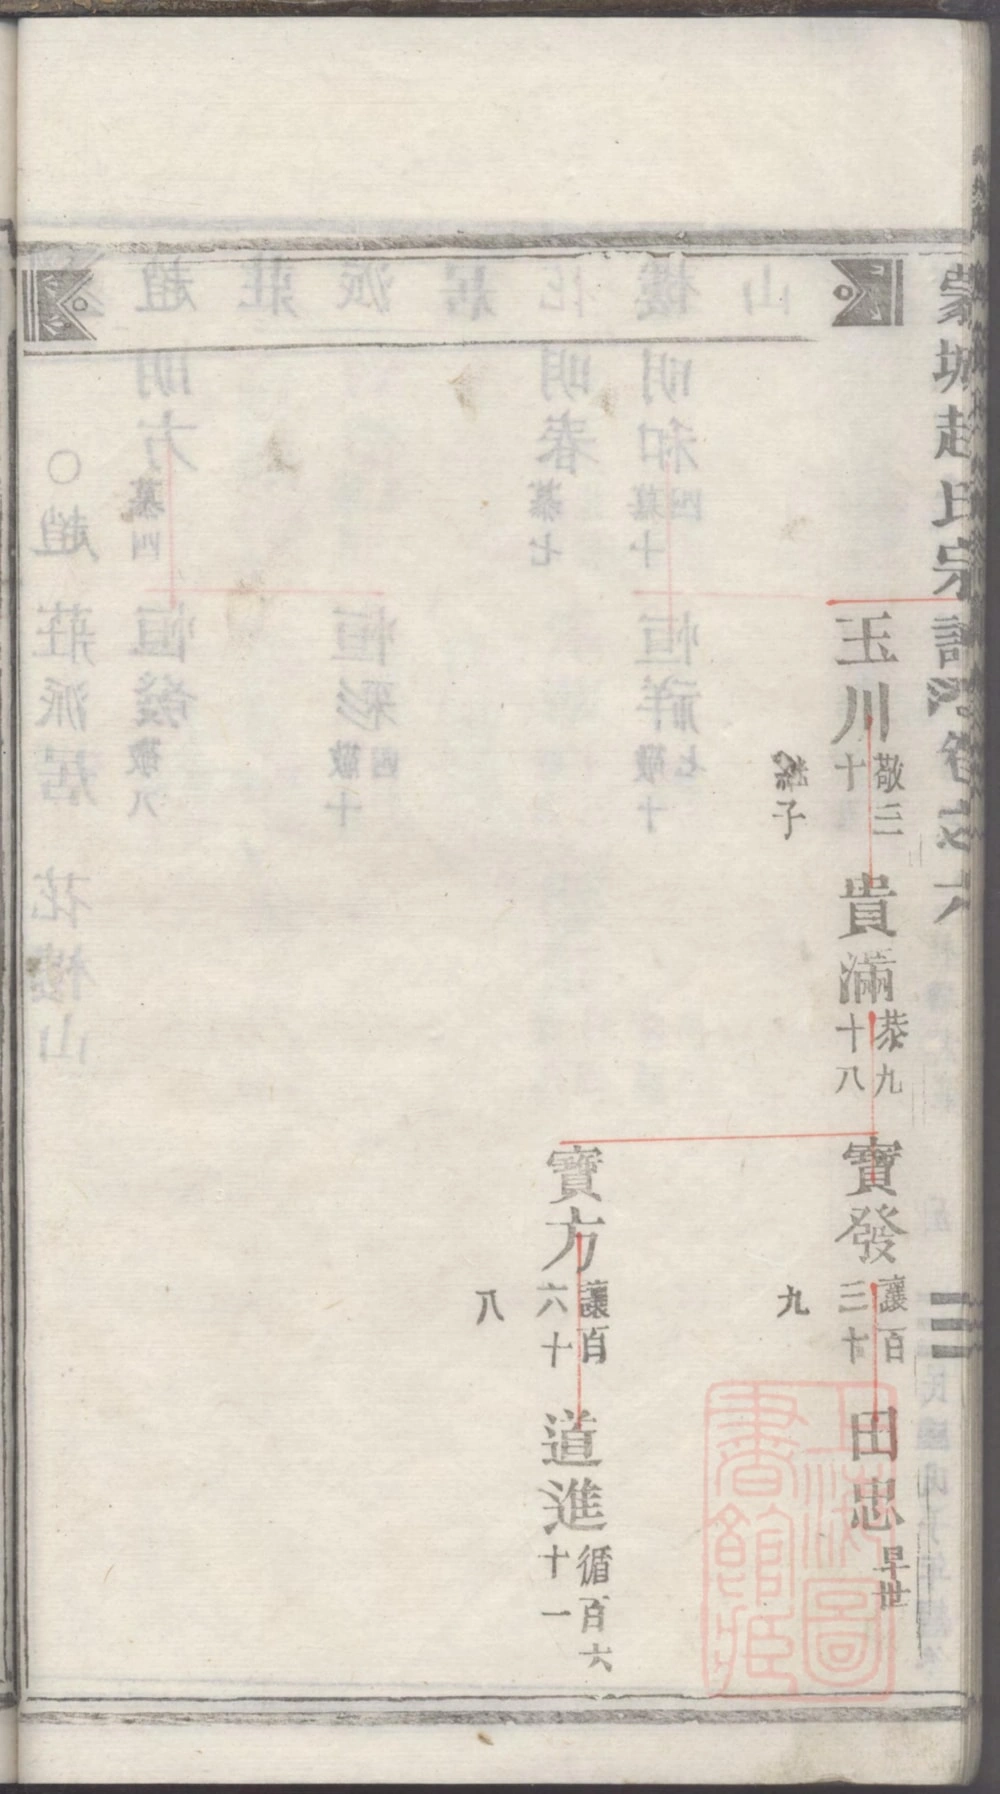 蒙城趙氏宗譜
卷之六
三
玉川
敬三
十
繼子
貴滿
恭九
十八
寶發
讓百
三十
九
田忠
早世
寶方
讓百
六十
八
道進
循百六
十一
上海圖
書館藏